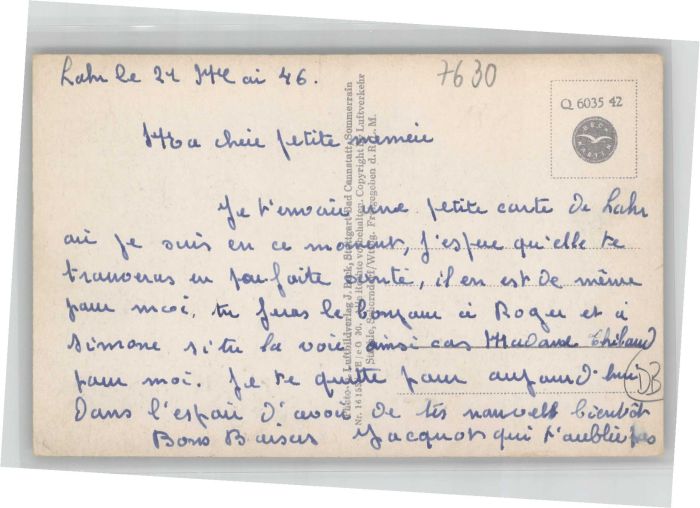 Lahr le 21 Mai 46.
7630
Q 6035 42
Ma cheie petite memeie
Je t'envoie une petite carte de Lahr
ou je suis en ce moment, J'espere qu'elle te
trouveras en parfaite santé, il en est de même
pour moi, tu feras le bonjour à Roger et à
Simone si tu la voie ainsi cas Madame Thibaud
pour moi. Je te quitte pour aujourd'hui
DB
Dans l'espoir d'avoir de tes nouvelle bientôt
Bons Baiser Jacquot qui t'oublie pas
Luftbildverlag J. Beck, Stuttgart-Bad Cannstatt, Sommerrain
Nr. 16 Rechte vorbehalten. Copyright by Luftverkehr
Schorndorf/Württg. Freigegeben d. R. L. M.